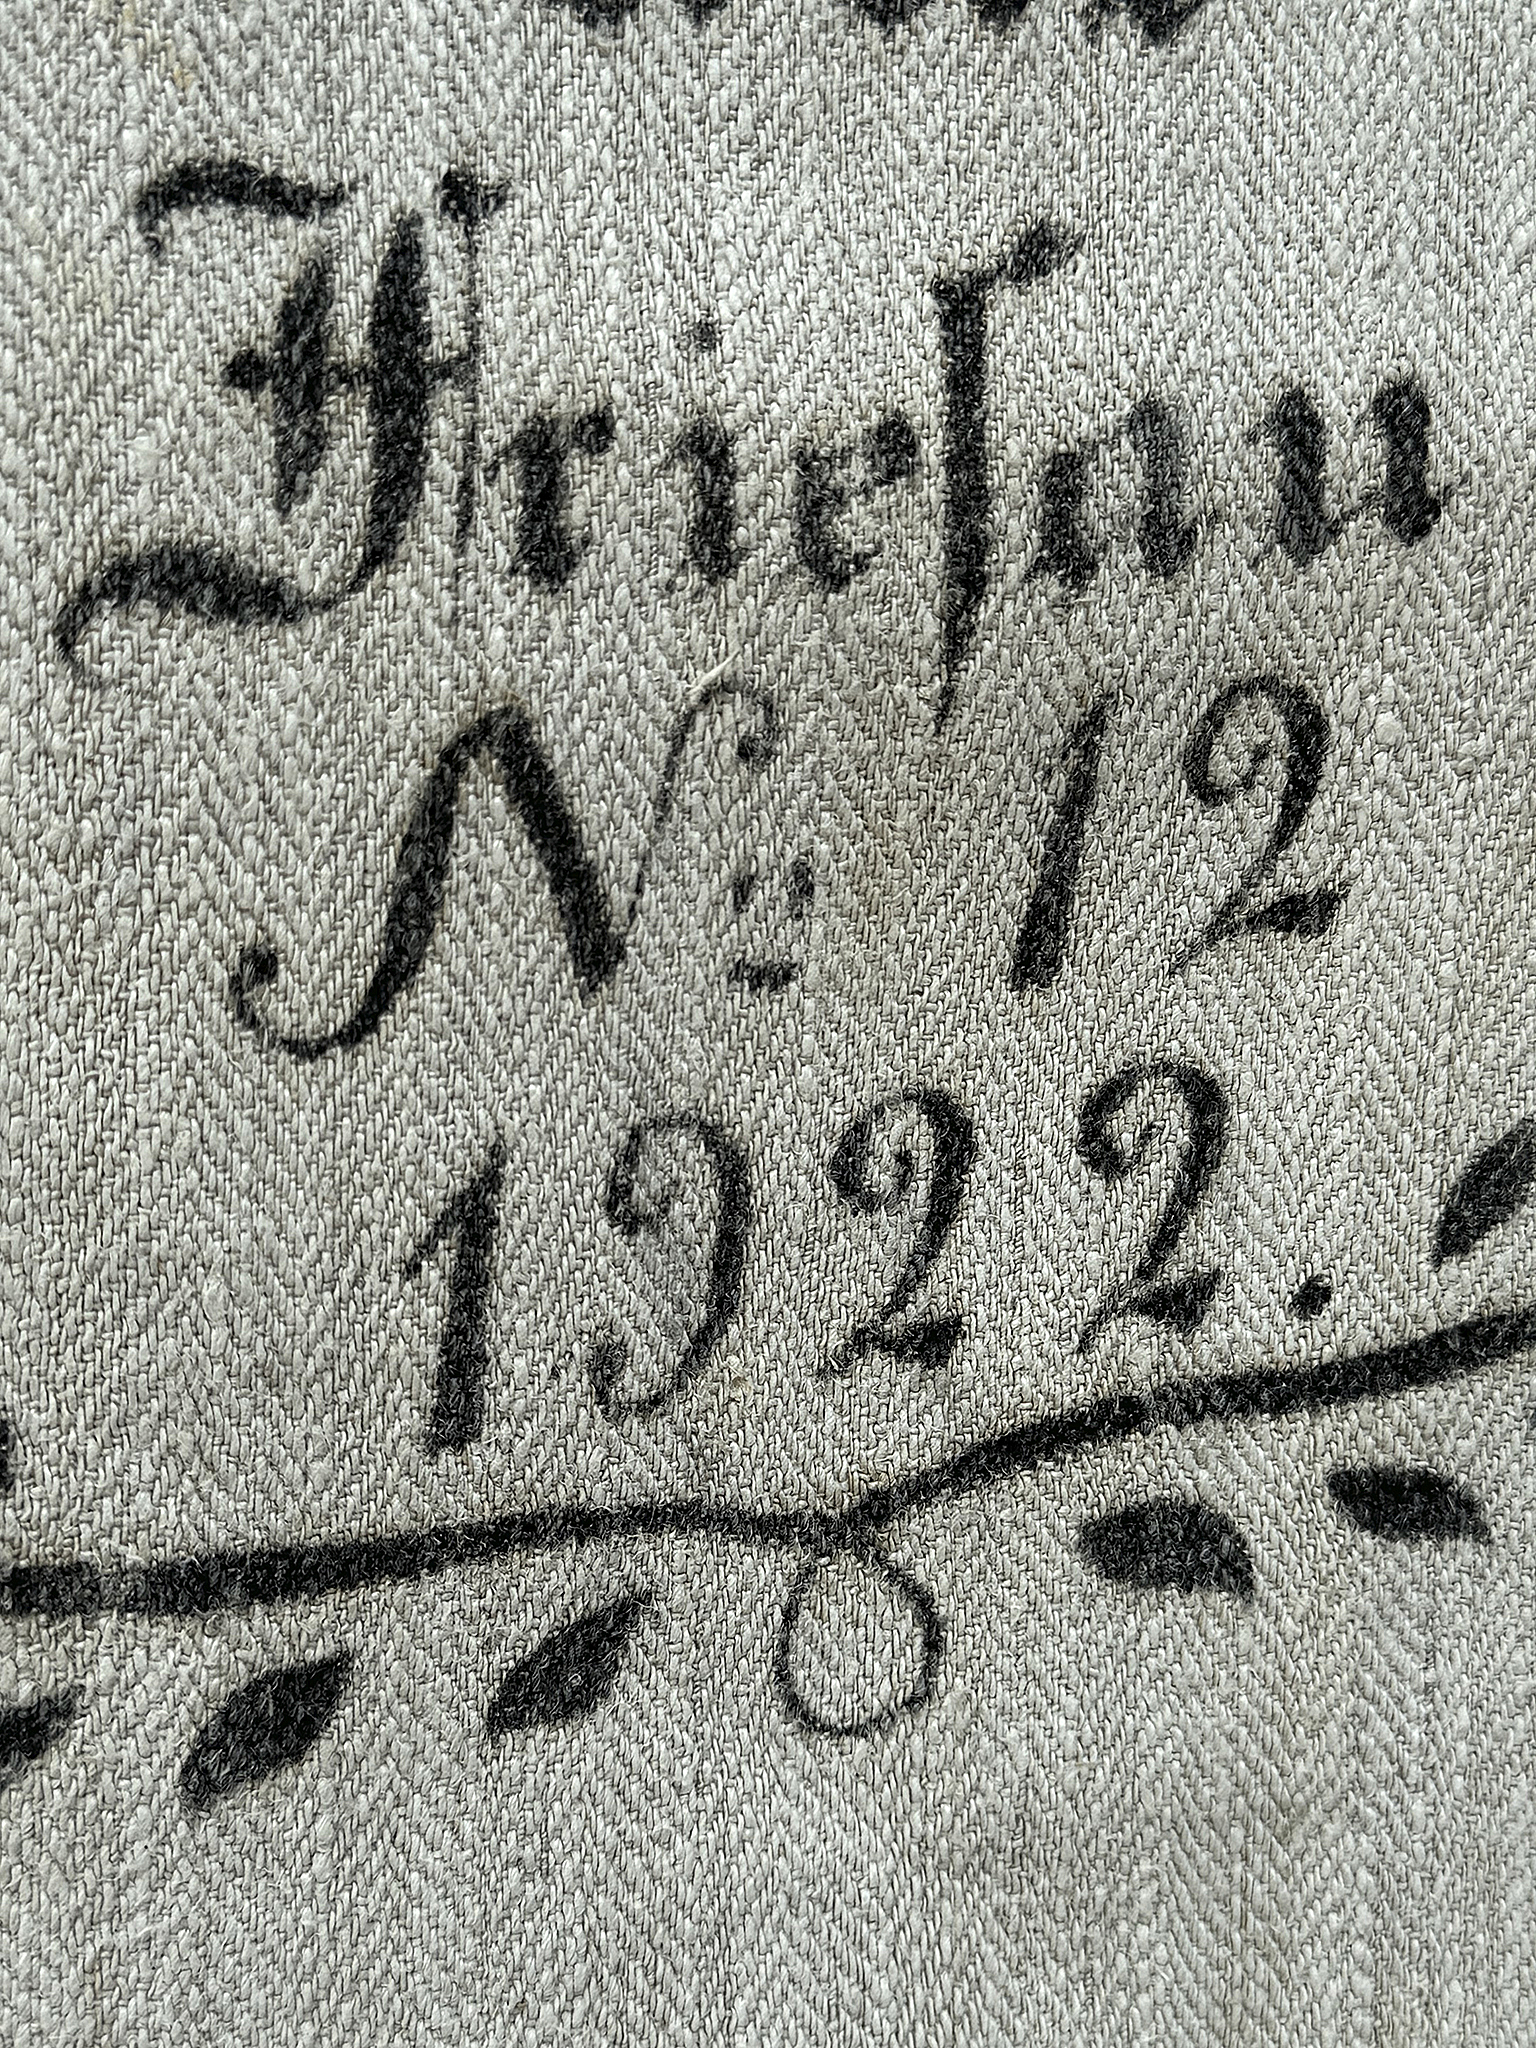 Frieſau
Nº 12
1922.